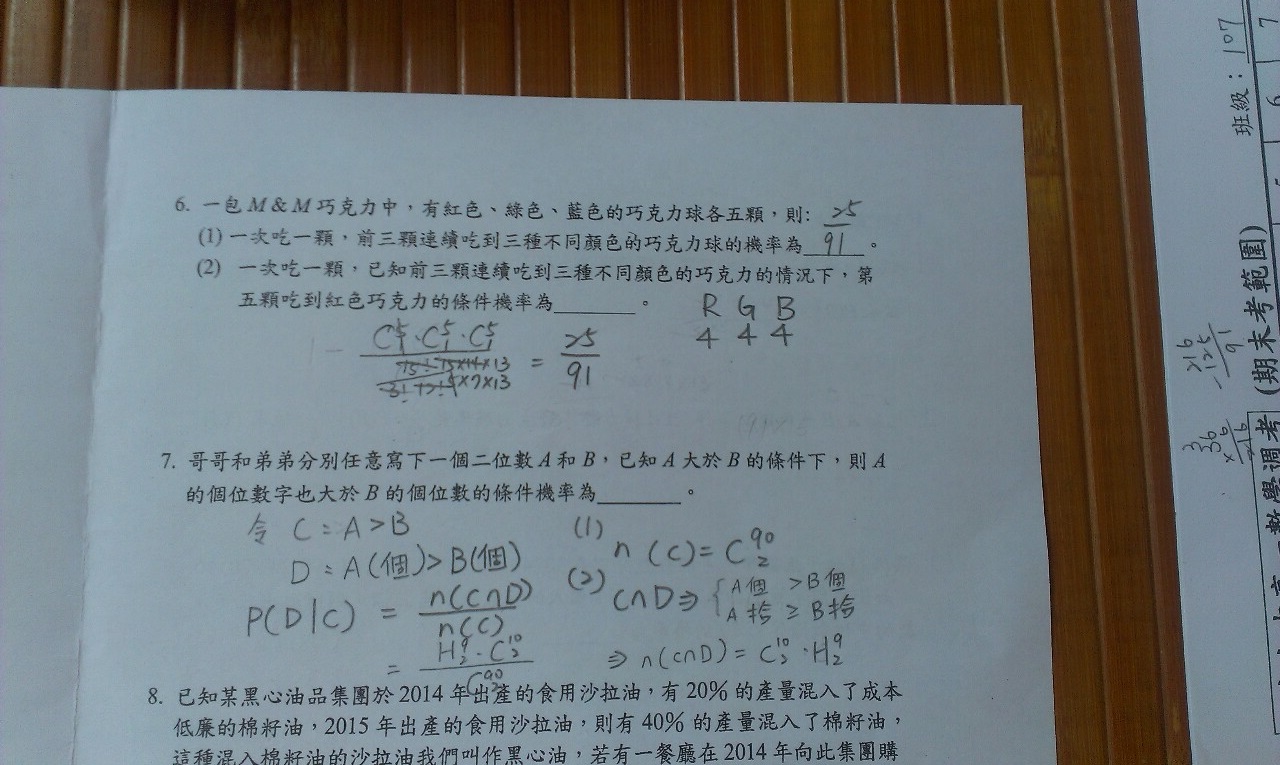 6. 一包 M & M 巧克力中，有紅色、綠色、藍色的巧克力球各五顆，則:
(1) 一次吃一顆，前三顆連續吃到三種不同顏色的巧克力球的機率為 25/91 。
(2) 一次吃一顆，已知前三顆連續吃到三種不同顏色的巧克力的情況下，第
五顆吃到紅色巧克力的條件機率為______。
R G B
4 4 4
C⁵₁·C⁵₁·C⁵₁
= 25/91
7. 哥哥和弟弟分別任意寫下一個二位數 A 和 B，已知 A 大於 B 的條件下，則 A
的個位數字也大於 B 的個位數的條件機率為______。
令 C : A > B
D : A(個) > B(個)
P(D|C) = n(C∩D)/n(C)
= H⁹₂·C¹⁰₂/C⁹⁰₂
(1) n(C) = C⁹⁰₂
(2) C∩D ⇒ { A個 > B個
A拾 ≥ B拾
⇒ n(C∩D) = C¹⁰₂·H⁹₂
8. 已知某黑心油品集團於 2014 年出產的食用沙拉油，有 20% 的產量混入了成本
低廉的棉籽油，2015 年出產的食用沙拉油，則有 40% 的產量混入了棉籽油，
這種混入棉籽油的沙拉油我們叫作黑心油，若有一餐廳在 2014 年向此集團購
班級：107
6 7
數學週考 (期末考範圍)
216
-125
91
36
× 6
216